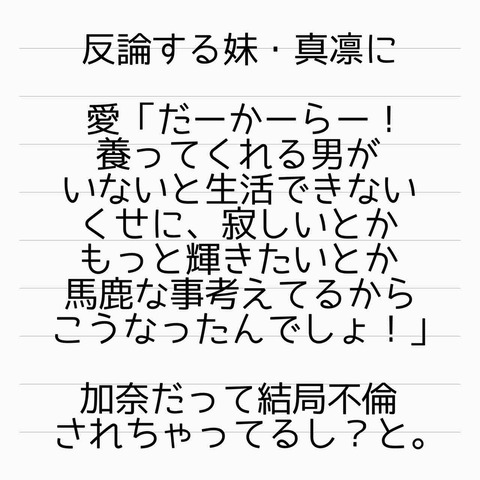 反論する妹・真凛に
愛「だーかーらー！
養ってくれる男が
いないと生活できない
くせに、寂しいとか
もっと輝きたいとか
馬鹿な事考えてるから
こうなったんでしょ！」
加奈だって結局不倫
されちゃってるし？と。